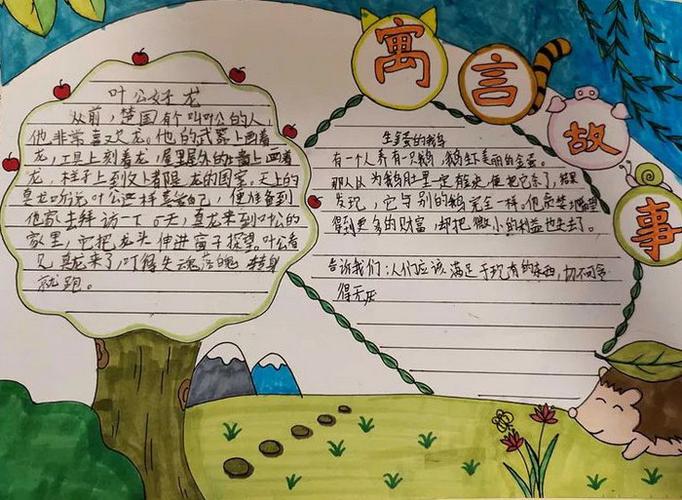 寓言故事
叶公好龙
从前，楚国有个叫叶公的人，
他非常喜欢龙。他的武器上画着
龙，工具上刻着龙，屋里屋外的墙上画着
龙，样子上到处都是龙的图案。天上的
真龙听说叶公这样喜爱自己，便准备到
他家去拜访一下。一天，真龙来到叶公的
家里，它把龙头伸进窗子探望。叶公看
见真龙来了，吓得失魂落魄，转身
就跑。
生金蛋的鹅
有一个人养有一只鹅，鹅生美丽的金蛋。
那人以为鹅肚里一定有金块，便把它杀了，结果
发现，它与别的鹅完全一样。他负梦想希望
得到更多的财富，却把微小的利益也失去了。
告诉我们：人们应该满足于现有的东西，切不可贪
得无厌